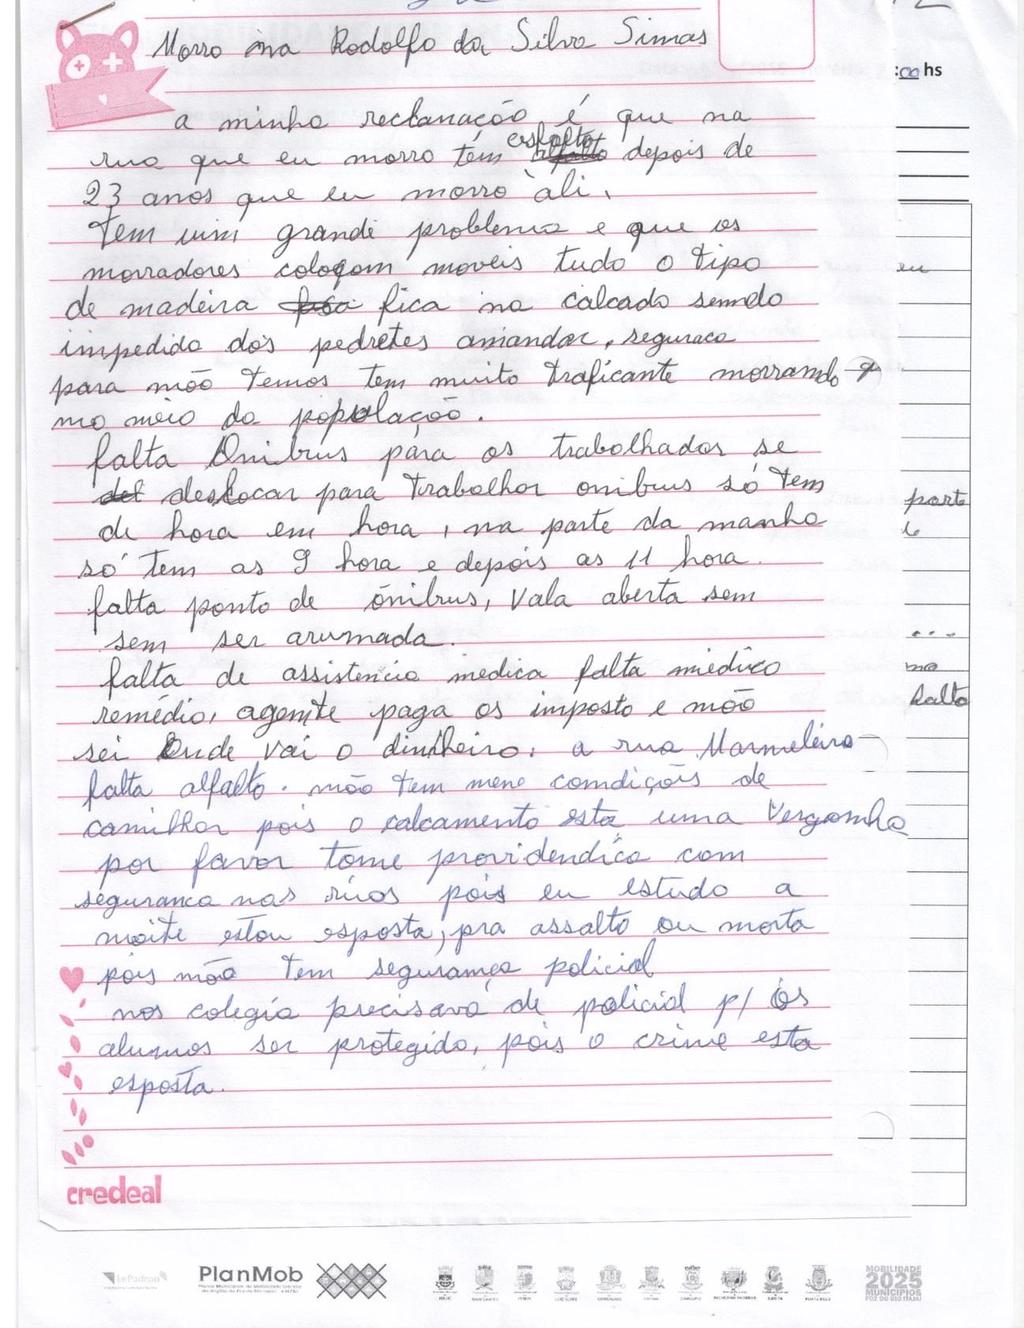 :00 hs
Morro na Rodolfo da Silva Simas
a minha reclanação é que na
rua que eu morro tém esfalto depois de
23 anos que eu morro ali.
Tem uim grande problema e que os
morradores coloqom moveis tudo o tipo
de madeira fica na calcada sendo
impedido dos pedretes amandar, seguraca
para não temos tem muito traficante morrando
no meio da população.
falta Onibrus para os trabalhador se
deslocar para trabalhor onibus só tem
de hora em hora, na parte da manha
só tem as 9 hora e depois as 11 hora.
falta ponto de ônibrus, vala aberta sem
sem ser arumada.
falta de assistencia medica falta miédico
remédio, agente paga os imposto e não
sei Onde vai o dinheiro. a rua Marmeleiro
falta alfalto. não tem mene comdições de
camilhar pois o calcamento esta uma vergonha
por favor tome providendica com
seguranca nas ruas pois eu estudo a
noite estou esposta, pra assalto ou morta
pois não tem segurança policial
nos colegia precisava de policial p/ os
alunos ser protegido, pois o crime esta
esposta.
eu
parte
...
no
falto
credeal
PlanMob
MOBILIDADE
2025
MUNICÍPIOS
FOZ DO RIO ITAJAÍ